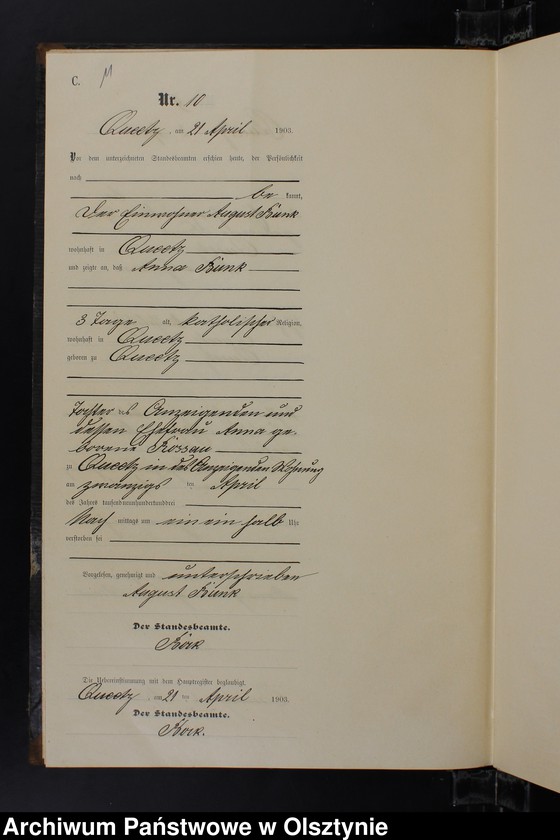 C.
Nr. 10
Queetz, am 21 April 1903.
Vor dem unterzeichneten Standesbeamten erschien heute, der Persönlichkeit
nach
be kannt,
Der Einwohner August Bünk
wohnhaft in Queetz
und zeigte an, daß Anna Bünk
3 Tage alt, katholischer Religion,
wohnhaft in Queetz
geboren zu Queetz
Tochter des Anzeigenden und
dessen Ehefrau Anna ge-
borene Kossau
zu Queetz in des Anzeigenden Wohnung
am zwanzigs ten April
des Jahres tausendneunhundertunddrei
Nach mittags um ein ein halb Uhr
verstorben sei
Vorgelesen, genehmigt und unterschrieben
August Bünk
Der Standesbeamte.
Die Uebereinstimmung mit dem Hauptregister beglaubigt.
Queetz, am 21 ten April 1903.
Der Standesbeamte.
Archiwum Państwowe w Olsztynie